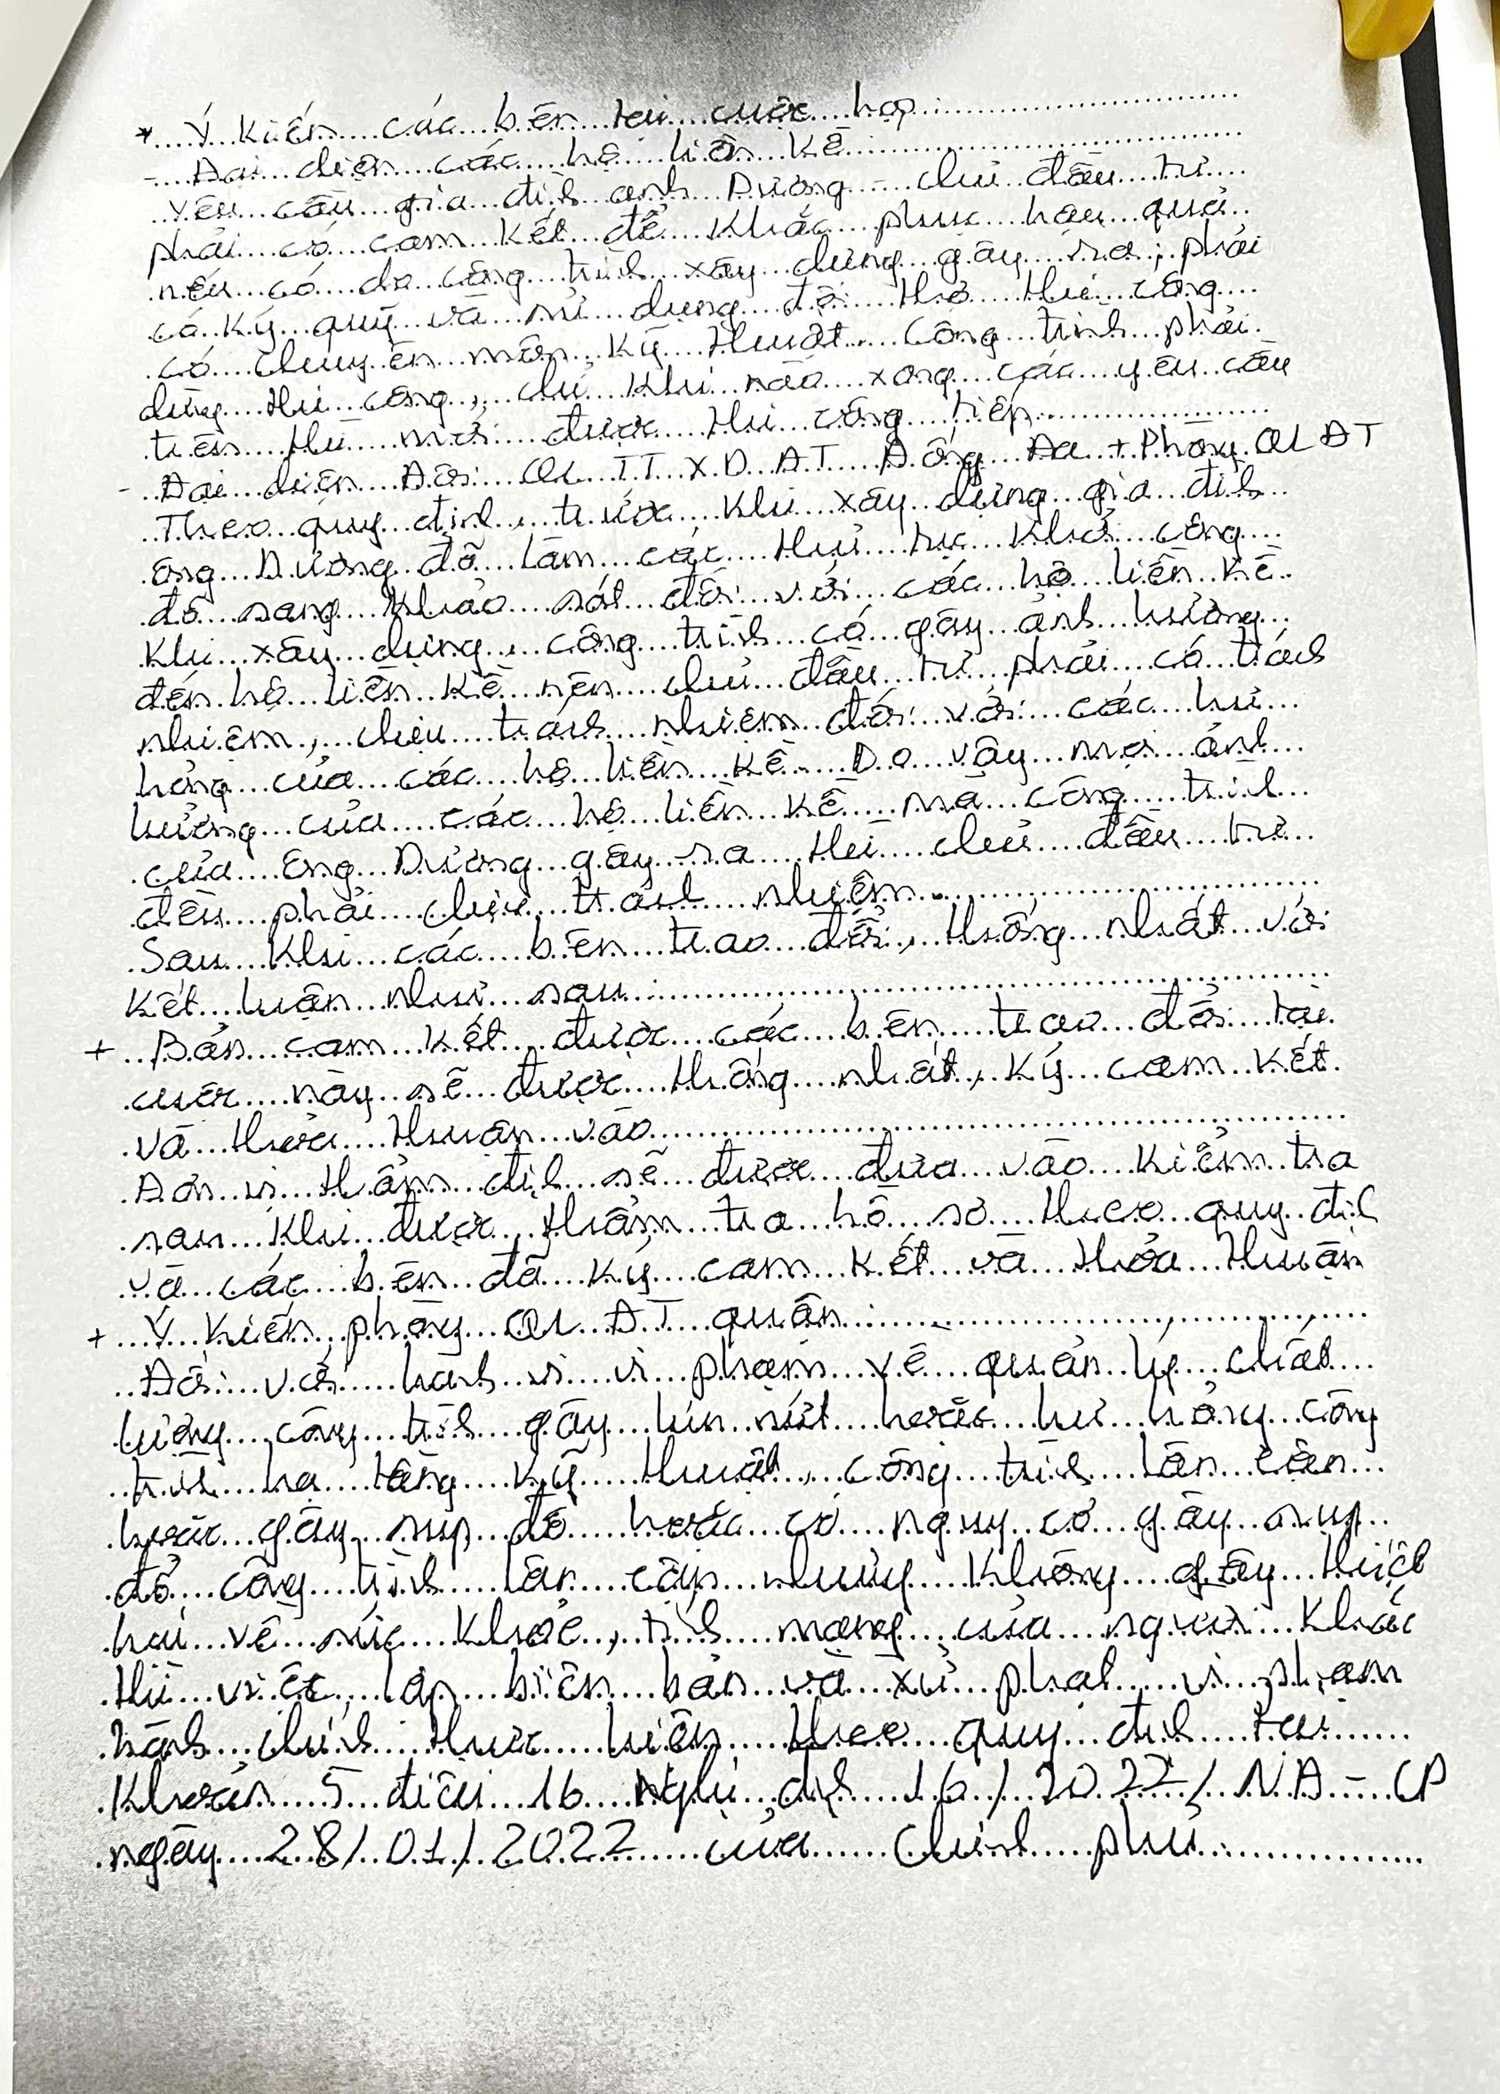 * Ý kiến các bên tại cuộc họp:
- Đại diện các hộ liền kề:
Yêu cầu gia đình anh Dương - chủ đầu tư
phải có cam kết để khắc phục hậu quả
nếu có do công trình xây dựng gây ra; phải
có ký quỹ và sử dụng đội thợ thi công
có chuyên môn, kỹ thuật. Công trình phải
dừng thi công, chỉ khi nào xong các yêu cầu
trên thì mới được thi công tiếp.
- Đại diện Đội QL TTXD ĐT Đống Đa + Phòng QLĐT
Theo quy định, trước khi xây dựng gia đình
ông Dương đã làm các thủ tục khởi công
đã sang khảo sát đối với các hộ liền kề
khi xây dựng, công trình có gây ảnh hưởng
đến hộ liền kề nên chủ đầu tư phải có trách
nhiệm, chịu trách nhiệm đối với các hư
hỏng của các hộ liền kề. Do vậy mọi ảnh
hưởng của các hộ liền kề mà công trình
của ông Dương gây ra thì chủ đầu tư
đều phải chịu trách nhiệm.
Sau khi các bên trao đổi, thống nhất với
kết luận như sau:
+ Bản cam kết được các bên trao đổi tại
cuộc này sẽ được thống nhất, ký cam kết
và thỏa thuận vào
Đơn vị thẩm định sẽ được đưa vào kiểm tra
sau khi được thẩm tra hồ sơ theo quy định
và các bên đã ký cam kết và thỏa thuận
+ Ý kiến phòng QL ĐT quận:
Đối với hành vi vi phạm về quản lý chất
lượng công trình gây lún nứt hoặc hư hỏng công
trình hạ tầng kỹ thuật, công trình lân cận
hoặc gây sụp đổ hoặc có nguy cơ gây sụp
đổ công trình lân cận nhưng không gây thiệt
hại về sức khỏe, tính mạng của người khác
thì việc lập biên bản và xử phạt vi phạm
hành chính thực hiện theo quy định tại
Khoản 5 điều 16 Nghị định 16/2022/NĐ-CP
ngày 28/01/2022 của Chính phủ.